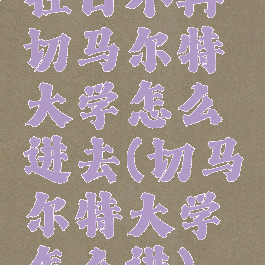 切马尔特
大学怎么
进去(切马
尔特大学
怎么进)